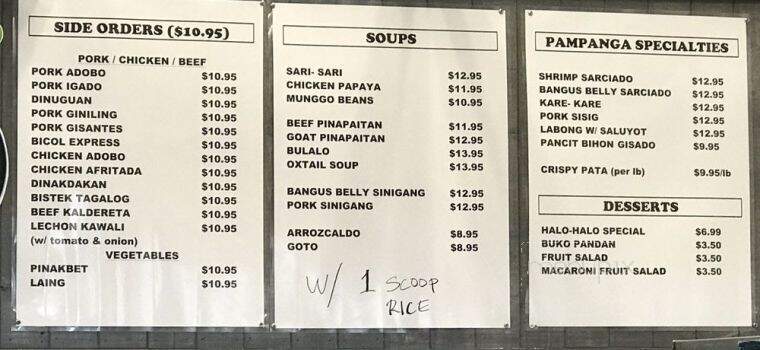 SIDE ORDERS ($10.95)
PORK / CHICKEN / BEEF
PORK ADOBO $10.95
PORK IGADO $10.95
DINUGUAN $10.95
PORK GINILING $10.95
PORK GISANTES $10.95
BICOL EXPRESS $10.95
CHICKEN ADOBO $10.95
CHICKEN AFRITADA $10.95
DINAKDAKAN $10.95
BISTEK TAGALOG $10.95
BEEF KALDERETA $10.95
LECHON KAWALI $10.95
(w/ tomato & onion)
VEGETABLES
PINAKBET $10.95
LAING $10.95
SOUPS
SARI- SARI $12.95
CHICKEN PAPAYA $11.95
MUNGGO BEANS $10.95
BEEF PINAPAITAN $11.95
GOAT PINAPAITAN $12.95
BULALO $13.95
OXTAIL SOUP $13.95
BANGUS BELLY SINIGANG $12.95
PORK SINIGANG $12.95
ARROZCALDO $8.95
GOTO $8.95
W/ 1 SCOOP
RICE
PAMPANGA SPECIALTIES
SHRIMP SARCIADO $12.95
BANGUS BELLY SARCIADO $12.95
KARE- KARE $12.95
PORK SISIG $12.95
LABONG W/ SALUYOT $12.95
PANCIT BIHON GISADO $9.95
CRISPY PATA (per lb) $9.95/lb
DESSERTS
HALO-HALO SPECIAL $6.99
BUKO PANDAN $3.50
FRUIT SALAD $3.50
MACARONI FRUIT SALAD $3.50